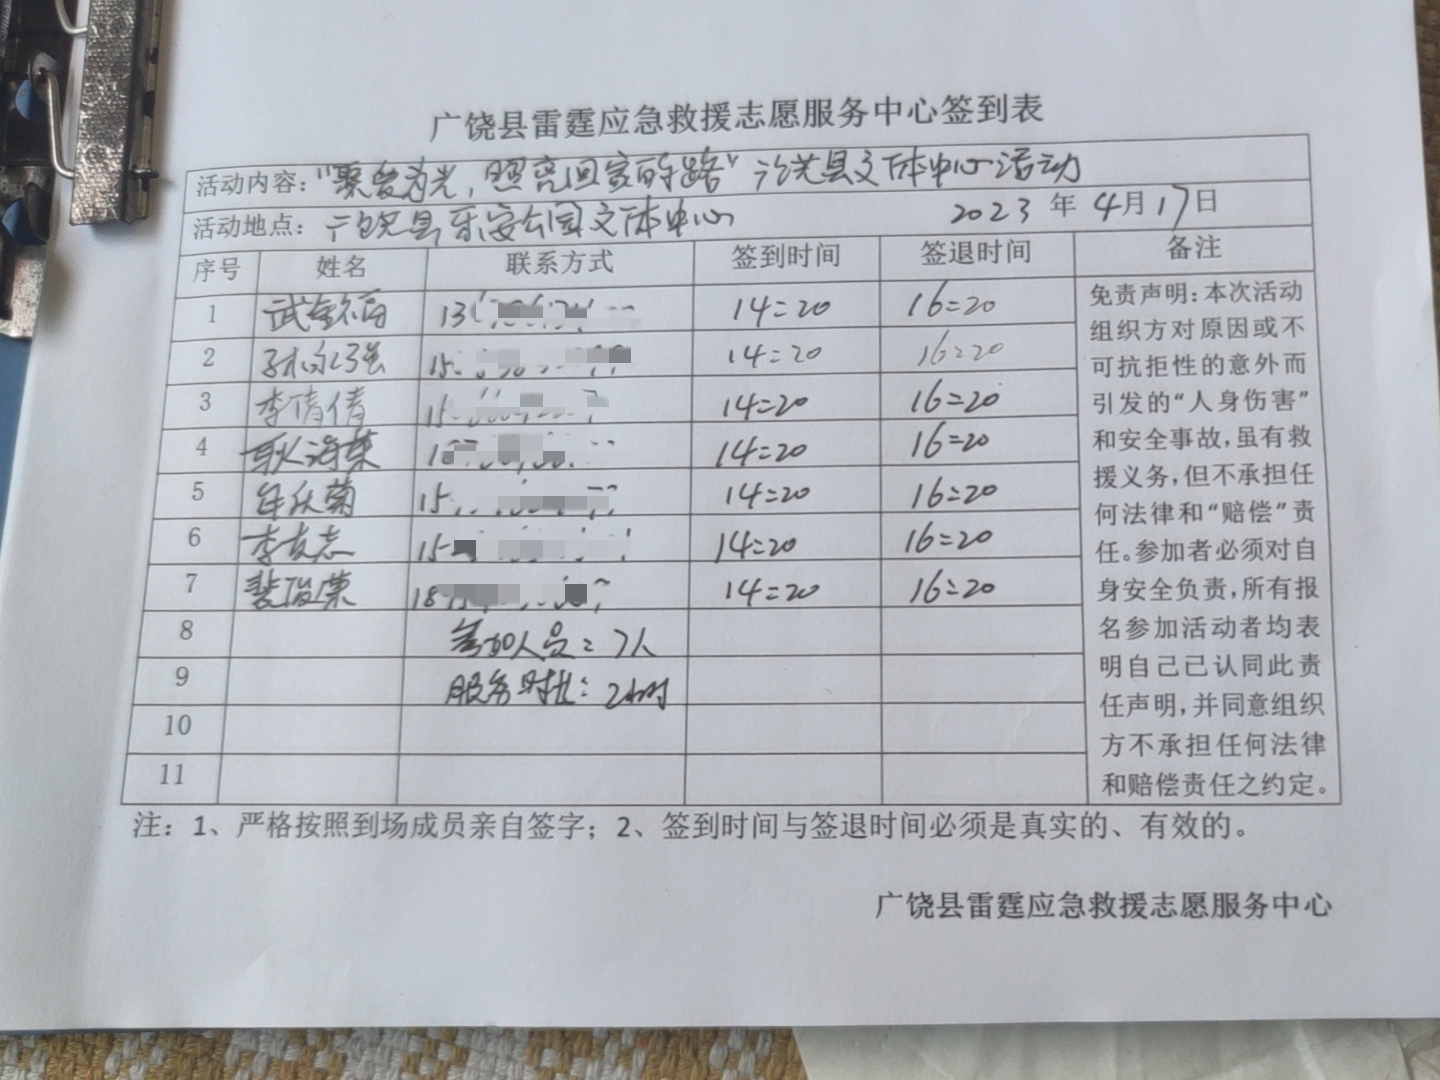 广饶县雷霆应急救援志愿服务中心签到表
活动内容："聚爱为光，照亮回家的路" 县文体中心活动
活动地点：广饶县乐安公园文体中心 2023 年 4月17日
序号 姓名 联系方式 签到时间 签退时间 备注
1 14:20 16:20
2 14:20 16:20
3 李倩倩 14:20 16:20
4 耿海荣 14:20 16:20
5 14:20 16:20
6 李友志 14:20 16:20
7 裴俊荣 14:20 16:20
8 参加人员：7人
9 服务时长：2小时
10
11
免责声明：本次活动
组织方对原因或不
可抗拒性的意外而
引发的“人身伤害”
和安全事故，虽有救
援义务，但不承担任
何法律和“赔偿”责
任。参加者必须对自
身安全负责，所有报
名参加活动者均表
明自己已认同此责
任声明，并同意组织
方不承担任何法律
和赔偿责任之约定。
注：1、严格按照到场成员亲自签字；2、签到时间与签退时间必须是真实的、有效的。
广饶县雷霆应急救援志愿服务中心